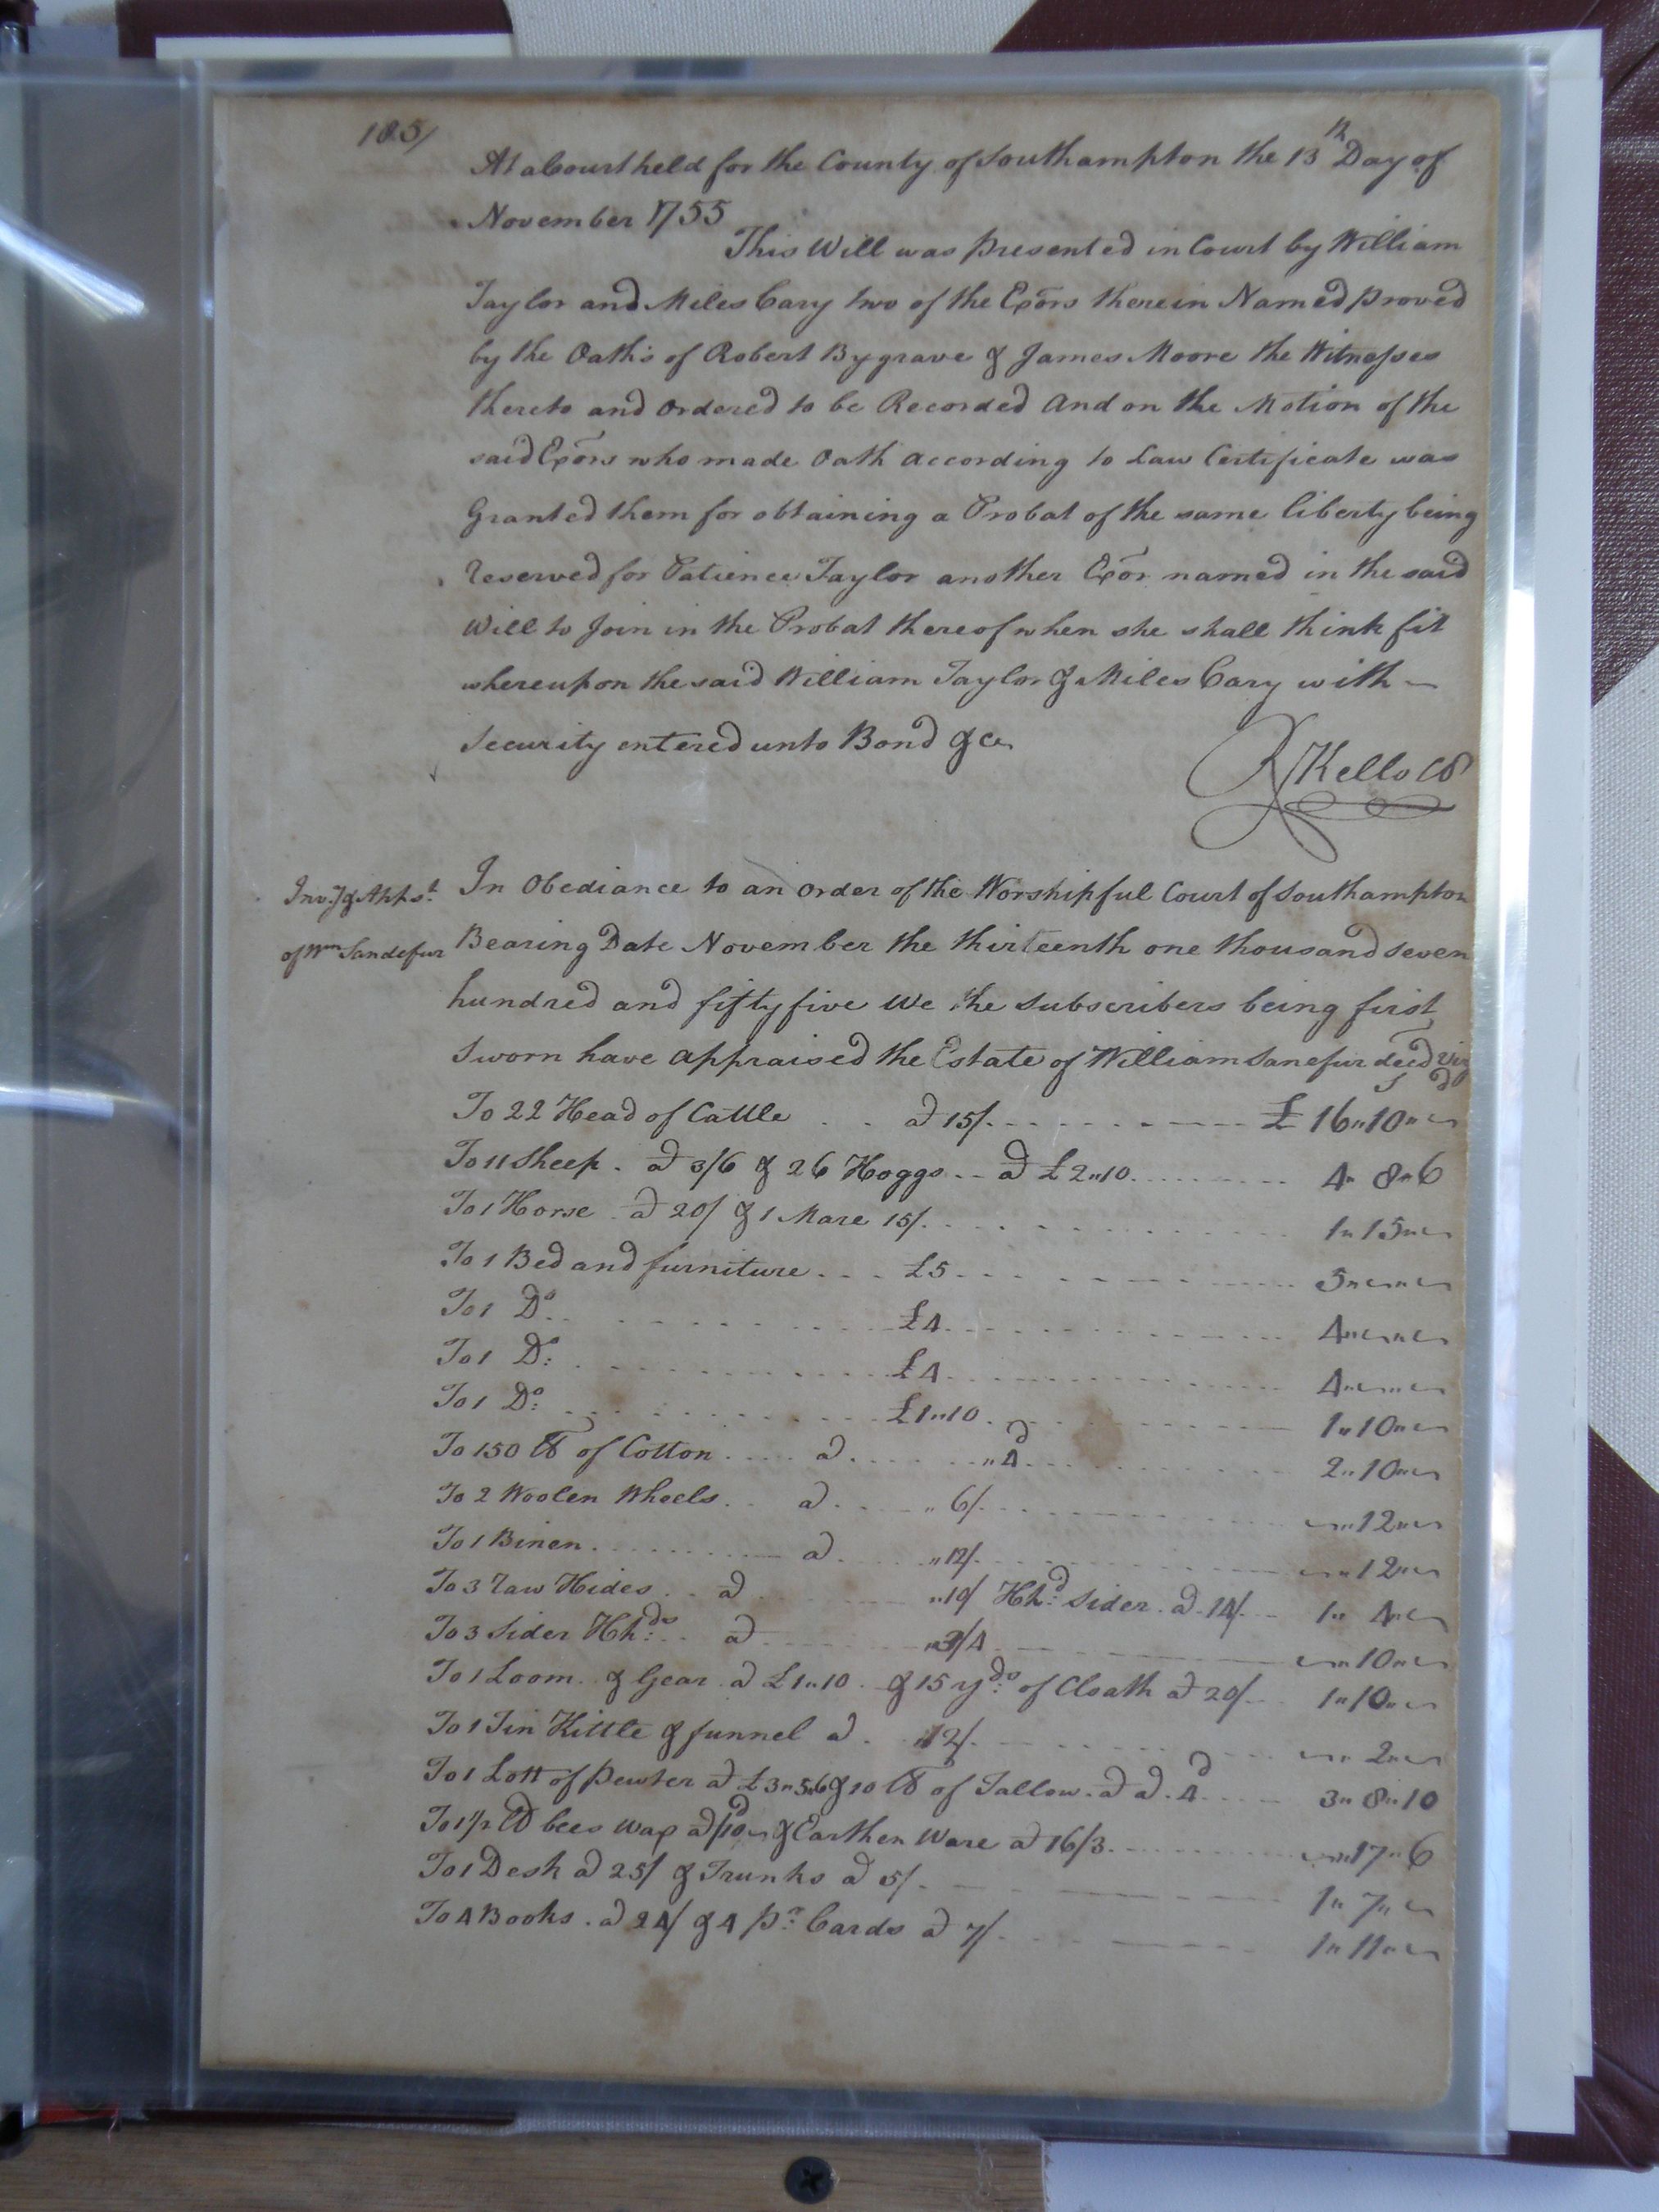 185/
At a Court held for the County of Southampton the 13th Day of
November 1755
This Will was presented in Court by William
Taylor and Miles Cary two of the Exors therein Named proved
by the Oaths of Robert Bygrave & James Moore the Witnesses
thereto and ordered to be Recorded And on the Motion of the
said Exors who made Oath according to Law Certificate was
Granted them for obtaining a Probat of the same liberty being
reserved for Patience Taylor another Exor named in the said
Will to Join in the Probat thereof when she shall think fit
whereupon the said William Taylor & Miles Cary with
Security entered unto Bond &c
R Kello
Inv.y & Apps.t
of Wm Sandefur
In Obediance to an order of the Worshipful Court of Southampton
Bearing Date November the thirteenth one thousand seven
hundred and fifty five We the Subscribers being first
Sworn have appraised the Estate of William Sanefur decd viz
S d
To 22 Head of Cattle . . a 15/. - - - £ 16 " 10 " ~
To 11 Sheep . a 3/6 & 26 Hoggs - - a £2 " 10 - - - 4 " 8 " 6
To 1 Horse a 20/ & 1 Mare 15/. - - - 1 " 15 " ~
To 1 Bed and furniture - - - £5 - - - 5 " ~ " ~
To 1 Do - - - £4 - - - 4 " ~ " ~
To 1 Do: - - - £4 - - - 4 " ~ " ~
To 1 Do: - - - £1 " 10 - - - 1 " 10 " ~
To 150 lb of Cotton - - - a - - - " 4d - - - 2 " 10 " ~
To 2 Woolen Wheels - - a - - - " 6/. - - - ~ " 12 " ~
To 1 Binen - - - a - - - " 12/. - - - ~ " 12 " ~
To 3 raw Hides - - a - - - " 10/ Hhd: Sider . a . 14/. - - 1 " 4 " ~
To 3 Sider Hhds: - - a - - - " 3/4 - - - ~ " 10 " ~
To 1 Loom . & Gear . a £1 " 10 . & 15 yds: of Cloath a 20/. - - 1 " 10 " ~
To 1 Tin Kittle & funnel a . " 12/. - - - ~ " 2 " ~
To 1 Lott of pewter a £3 " 5 " 6 & 10 lb of Tallow . a a . 4d - - - 3 " 8 " 10
To 1 1/2 lb bees wax a & Earthen Ware a 16/3 - - - ~ " 17 " 6
To 1 Desk a 25/ & Trunks a 5/. - - - 1 " 7 " ~
To 4 Books . a 24/ & 4 pr: Cards a 7/. - - - 1 " 11 " ~